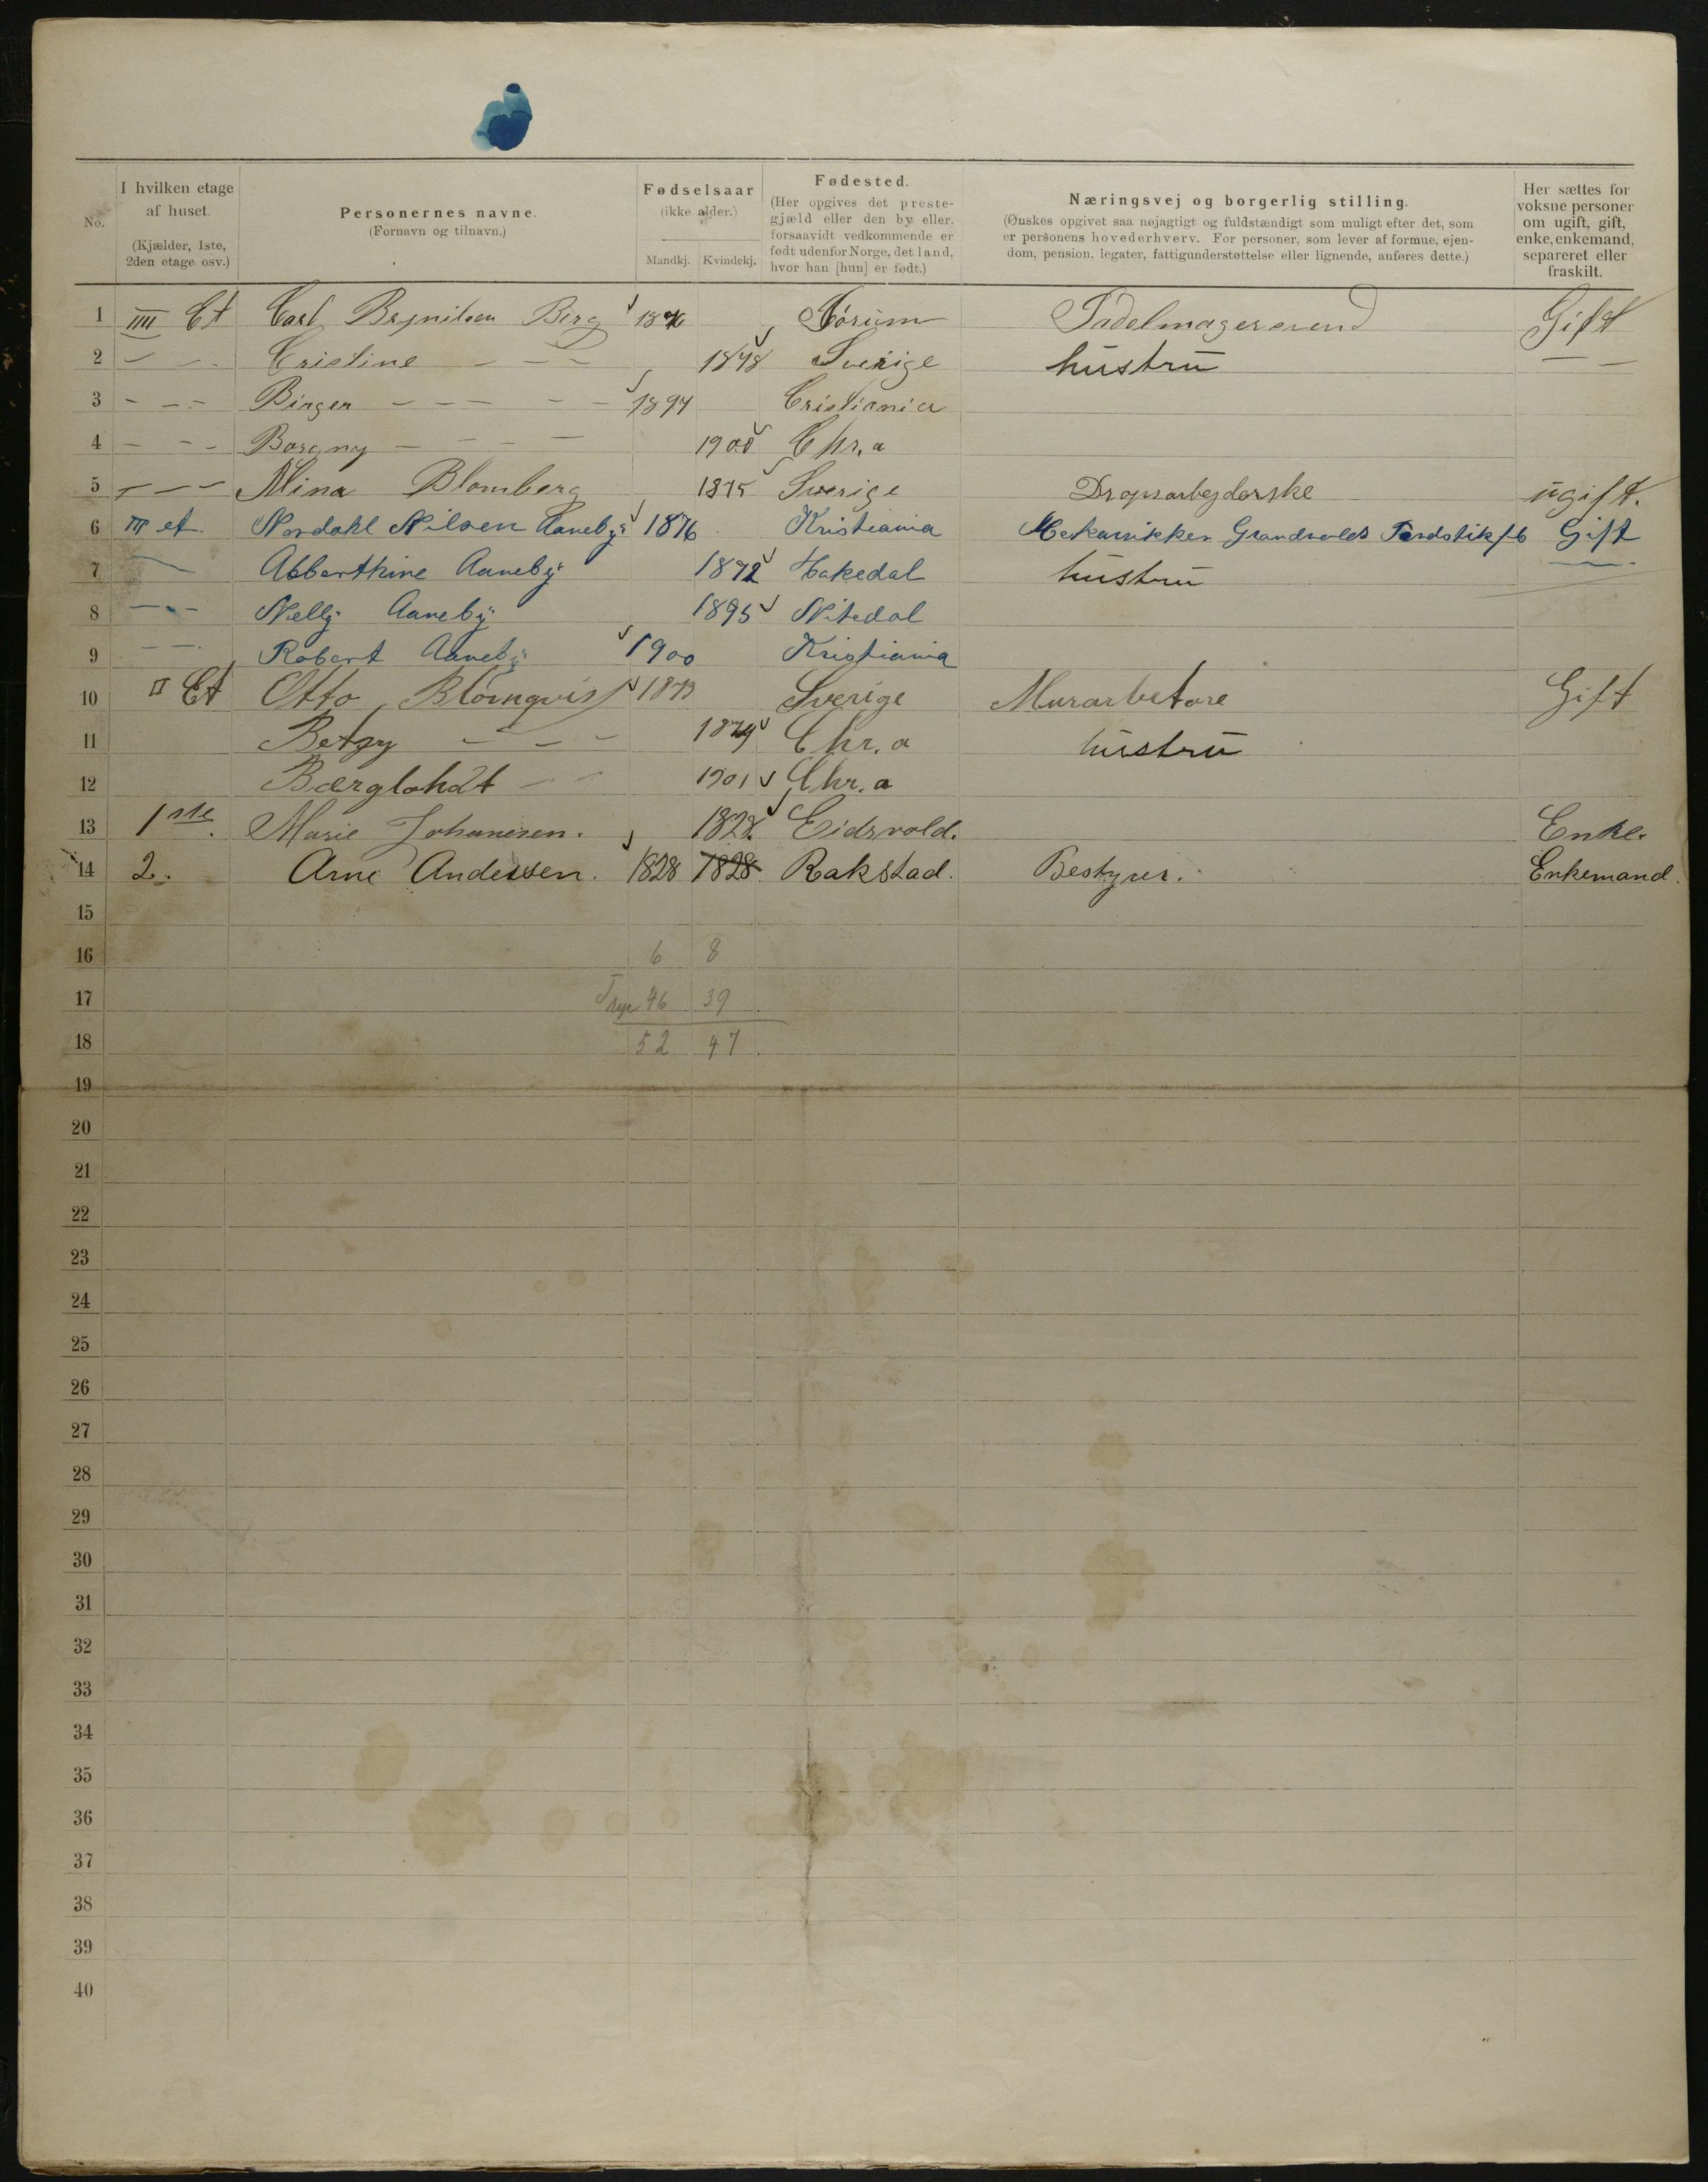 No.
I hvilken etage af huset.
(Kjælder, 1ste, 2den etage osv.)
Personernes navne.
(Fornavn og tilnavn.)
Fødselsaar
(ikke alder.)
Mandkj. Kvindekj.
Fødested.
(Her opgives det prestegjæld eller den by eller, forsaavidt vedkommende er født udenfor Norge, det land, hvor han [hun] er født.)
Næringsvej og borgerlig stilling.
(Ønskes opgivet saa nøjagtigt og fuldstændigt som muligt efter det, som er personens hovederhverv. For personer, som lever af formue, ejendom, pension, legater, fattigunderstøttelse eller lignende, anføres dette.)
Her sættes for voksne personer om ugift, gift, enke, enkemand, separeret eller fraskilt.
1 IIII Et Carl Brynilsen Berg 1876 Sørum Sadelmagersvend Gift
2 – – Cristine – – – 1878 Sverige hustru – –
3 – – – Birger – – – – 1894 Cristiania
4 – – – Borgny – – – – 1900 Chr.a
5 – – – Alina Blomberg 1875 Sverige Dropsarbejderske ugift.
6 III et Nordahl Nilsen Aaneby 1876 Kristiania Mekanikker Grandvolds Gift
7 – Abberthine Aaneby 1872 Hakedal hustru –
8 – – – Nelly Aaneby 1895 Nitedal
9 – – Robert Aaneby 1900 Kristiania
10 II Et Otto Blomqvist 1873 Sverige Murarbetare Gift
11 Betzy – – – 1874 Chr.a hustru
12 – – 1901 Chr.a
13 1ste. Marie Johanesen. 1828. Eidsvold. Enke.
14 2. Arne Andersen. 1828 1828 Rakstad. Bestyrer. Enkemand.
15
16 6 8
17 46 39
18 52 47
19
20
21
22
23
24
25
26
27
28
29
30
31
32
33
34
35
36
37
38
39
40